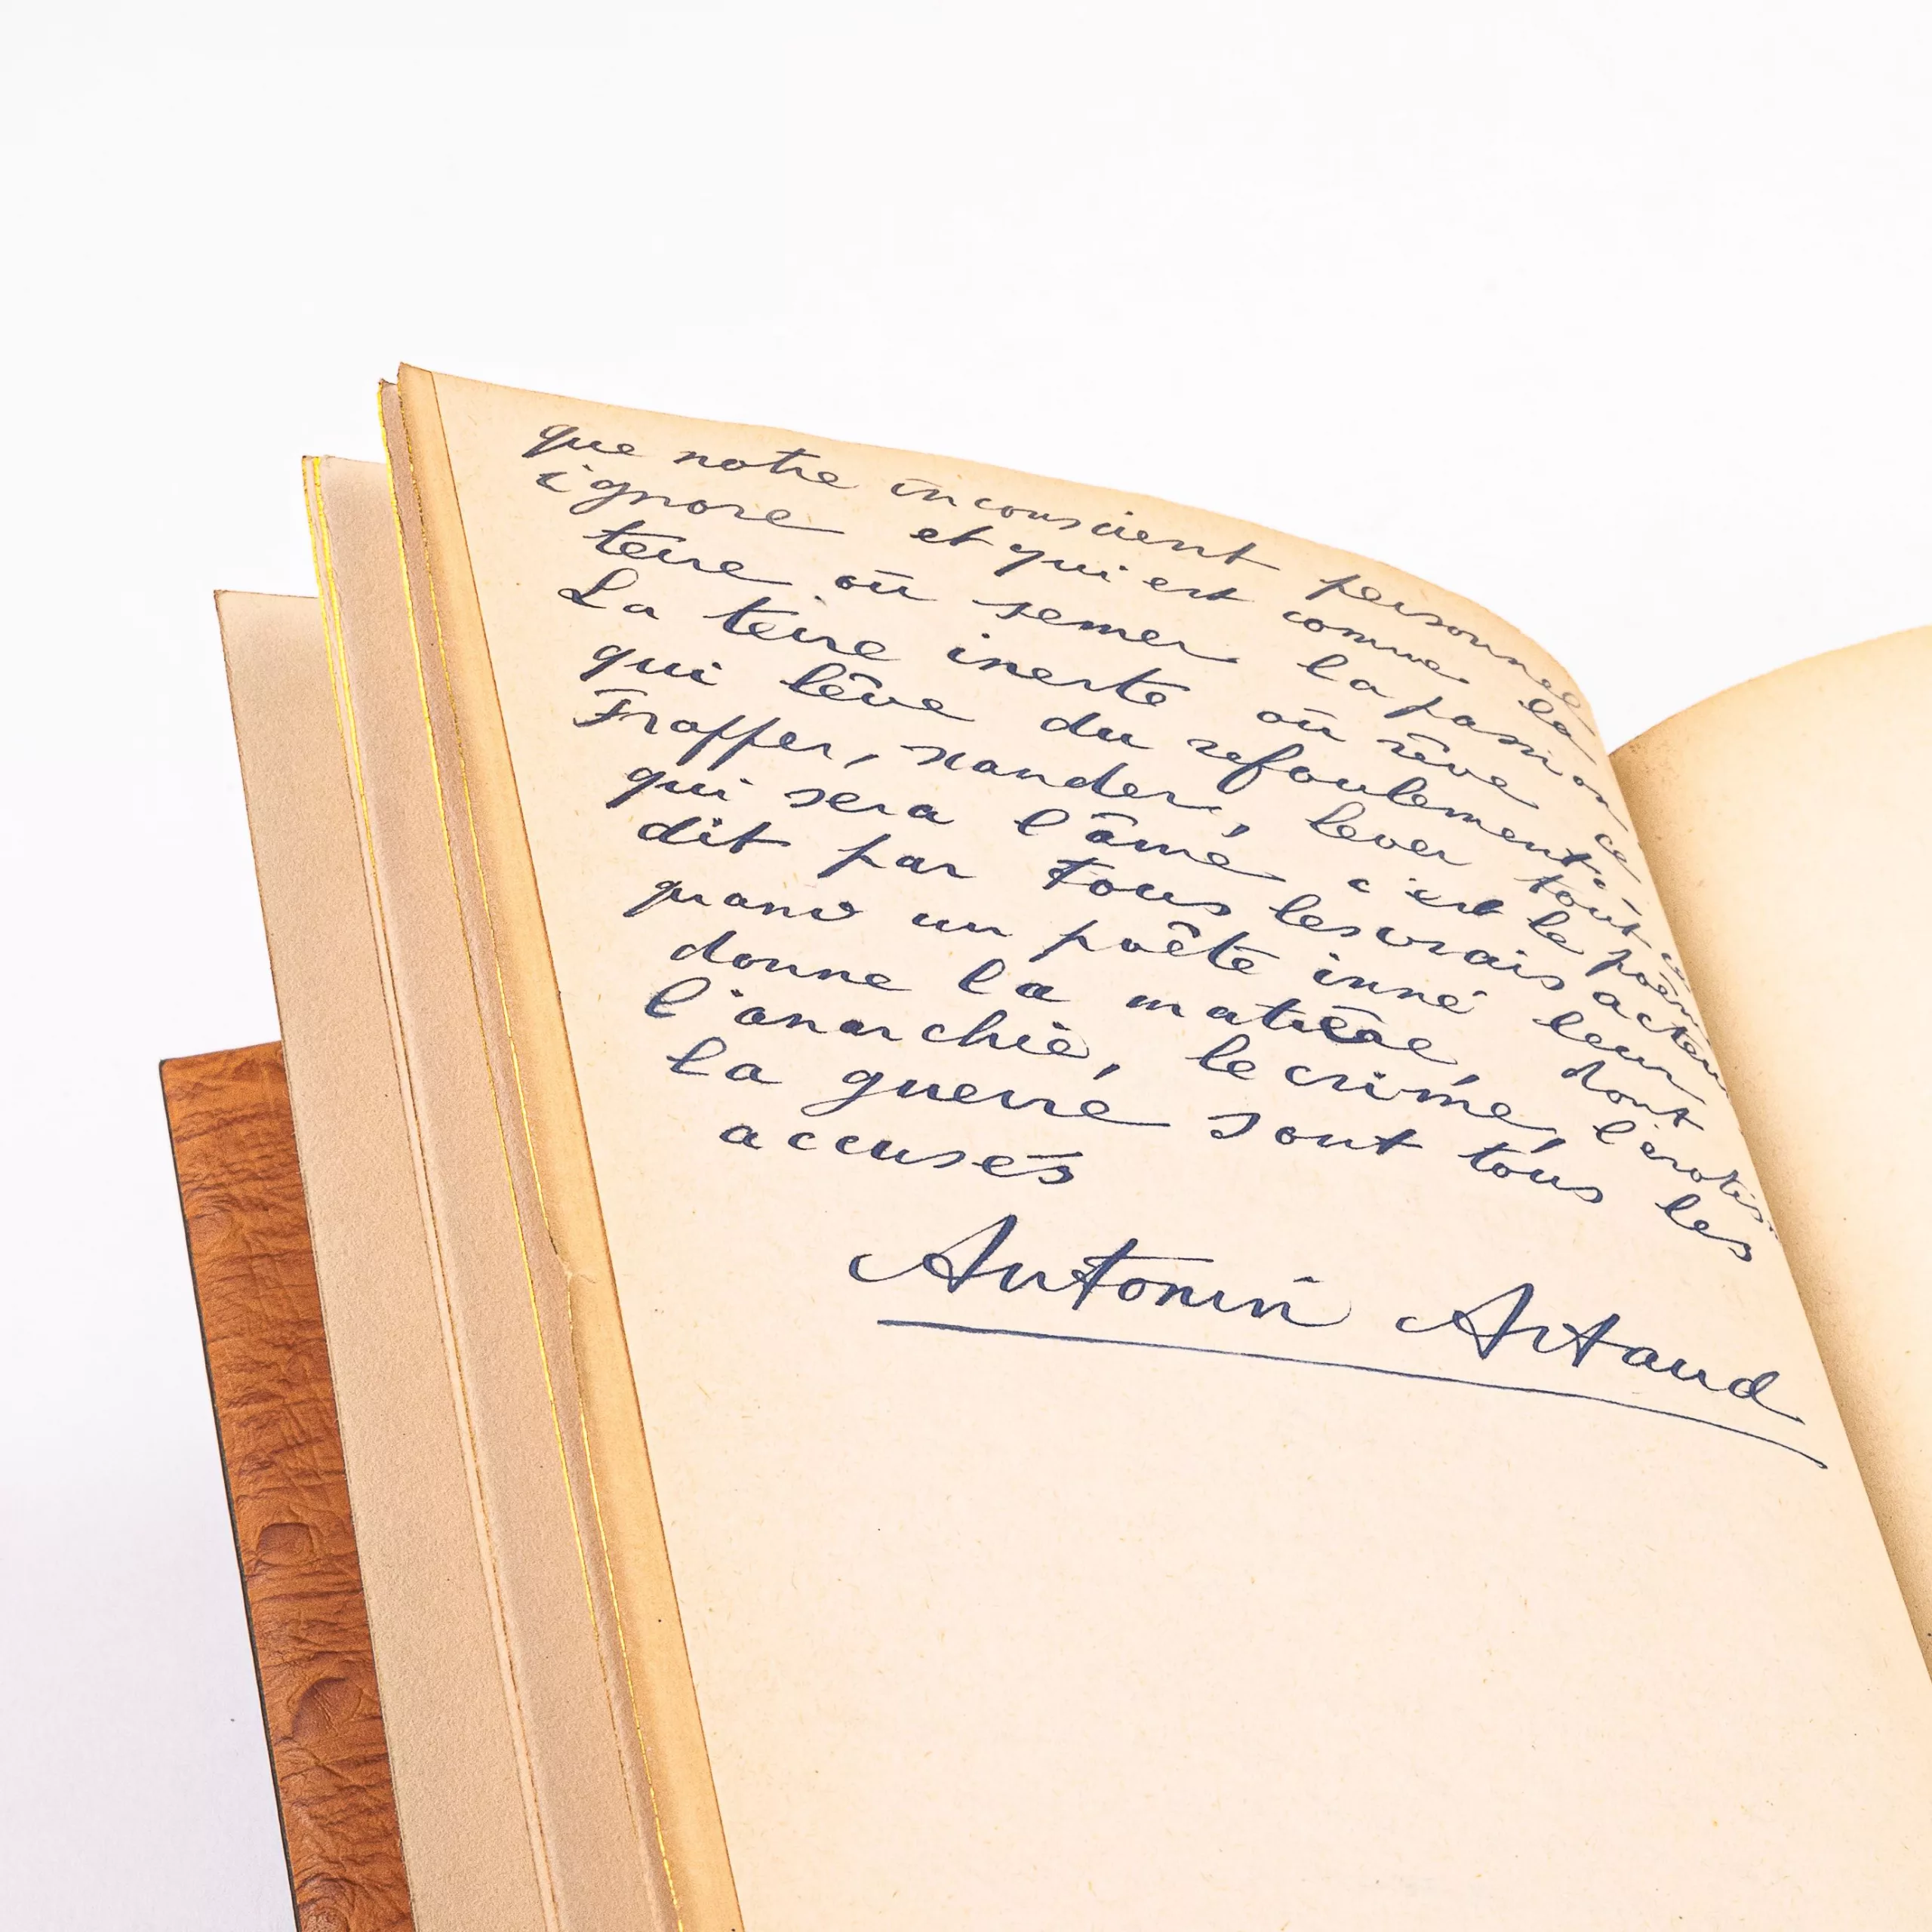 que notre inconscient personnel
ignore et qui est comme la
terre où semer la passion,
La terre inerte où rêve ce
qui lève du refoulement.
Frapper, scander, lever tout ce
qui sera l'âme c'est le poème
dit par tous les vrais acteurs
quand un poête inné leur
donne la matière, dont
l'anarchie, le crime, l'érotis
la guerre sont tous les
accusés
Antonin Artaud